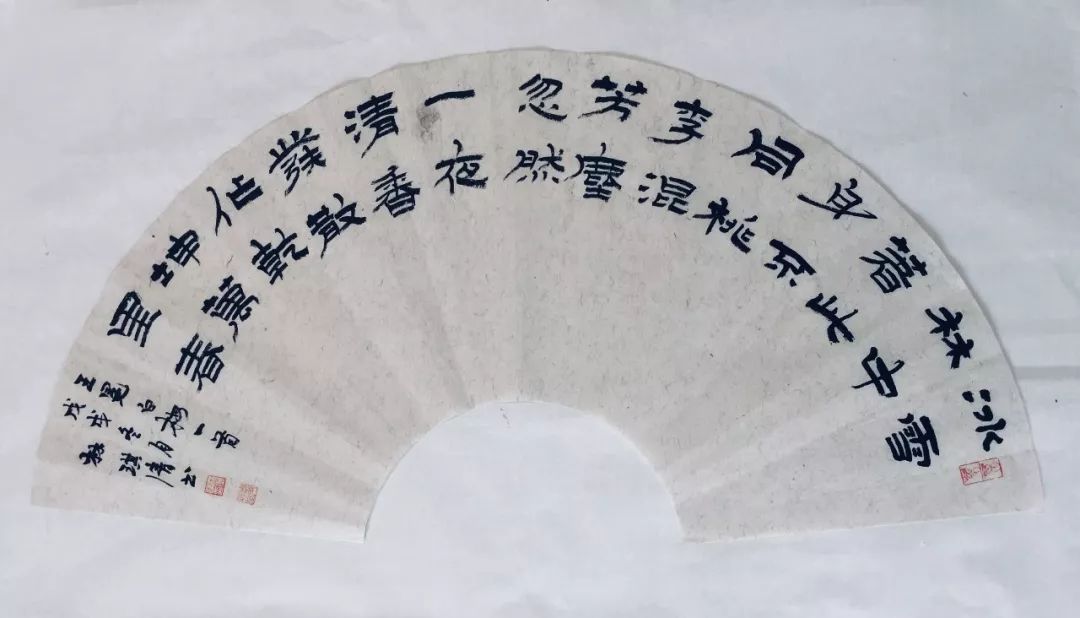 冰雪
林中
著此
身不
同桃
李混
芳塵
忽然
一夜
清香
發散
作乾
坤萬
里春
王冕白梅一首
戊戌冬月
琪清书